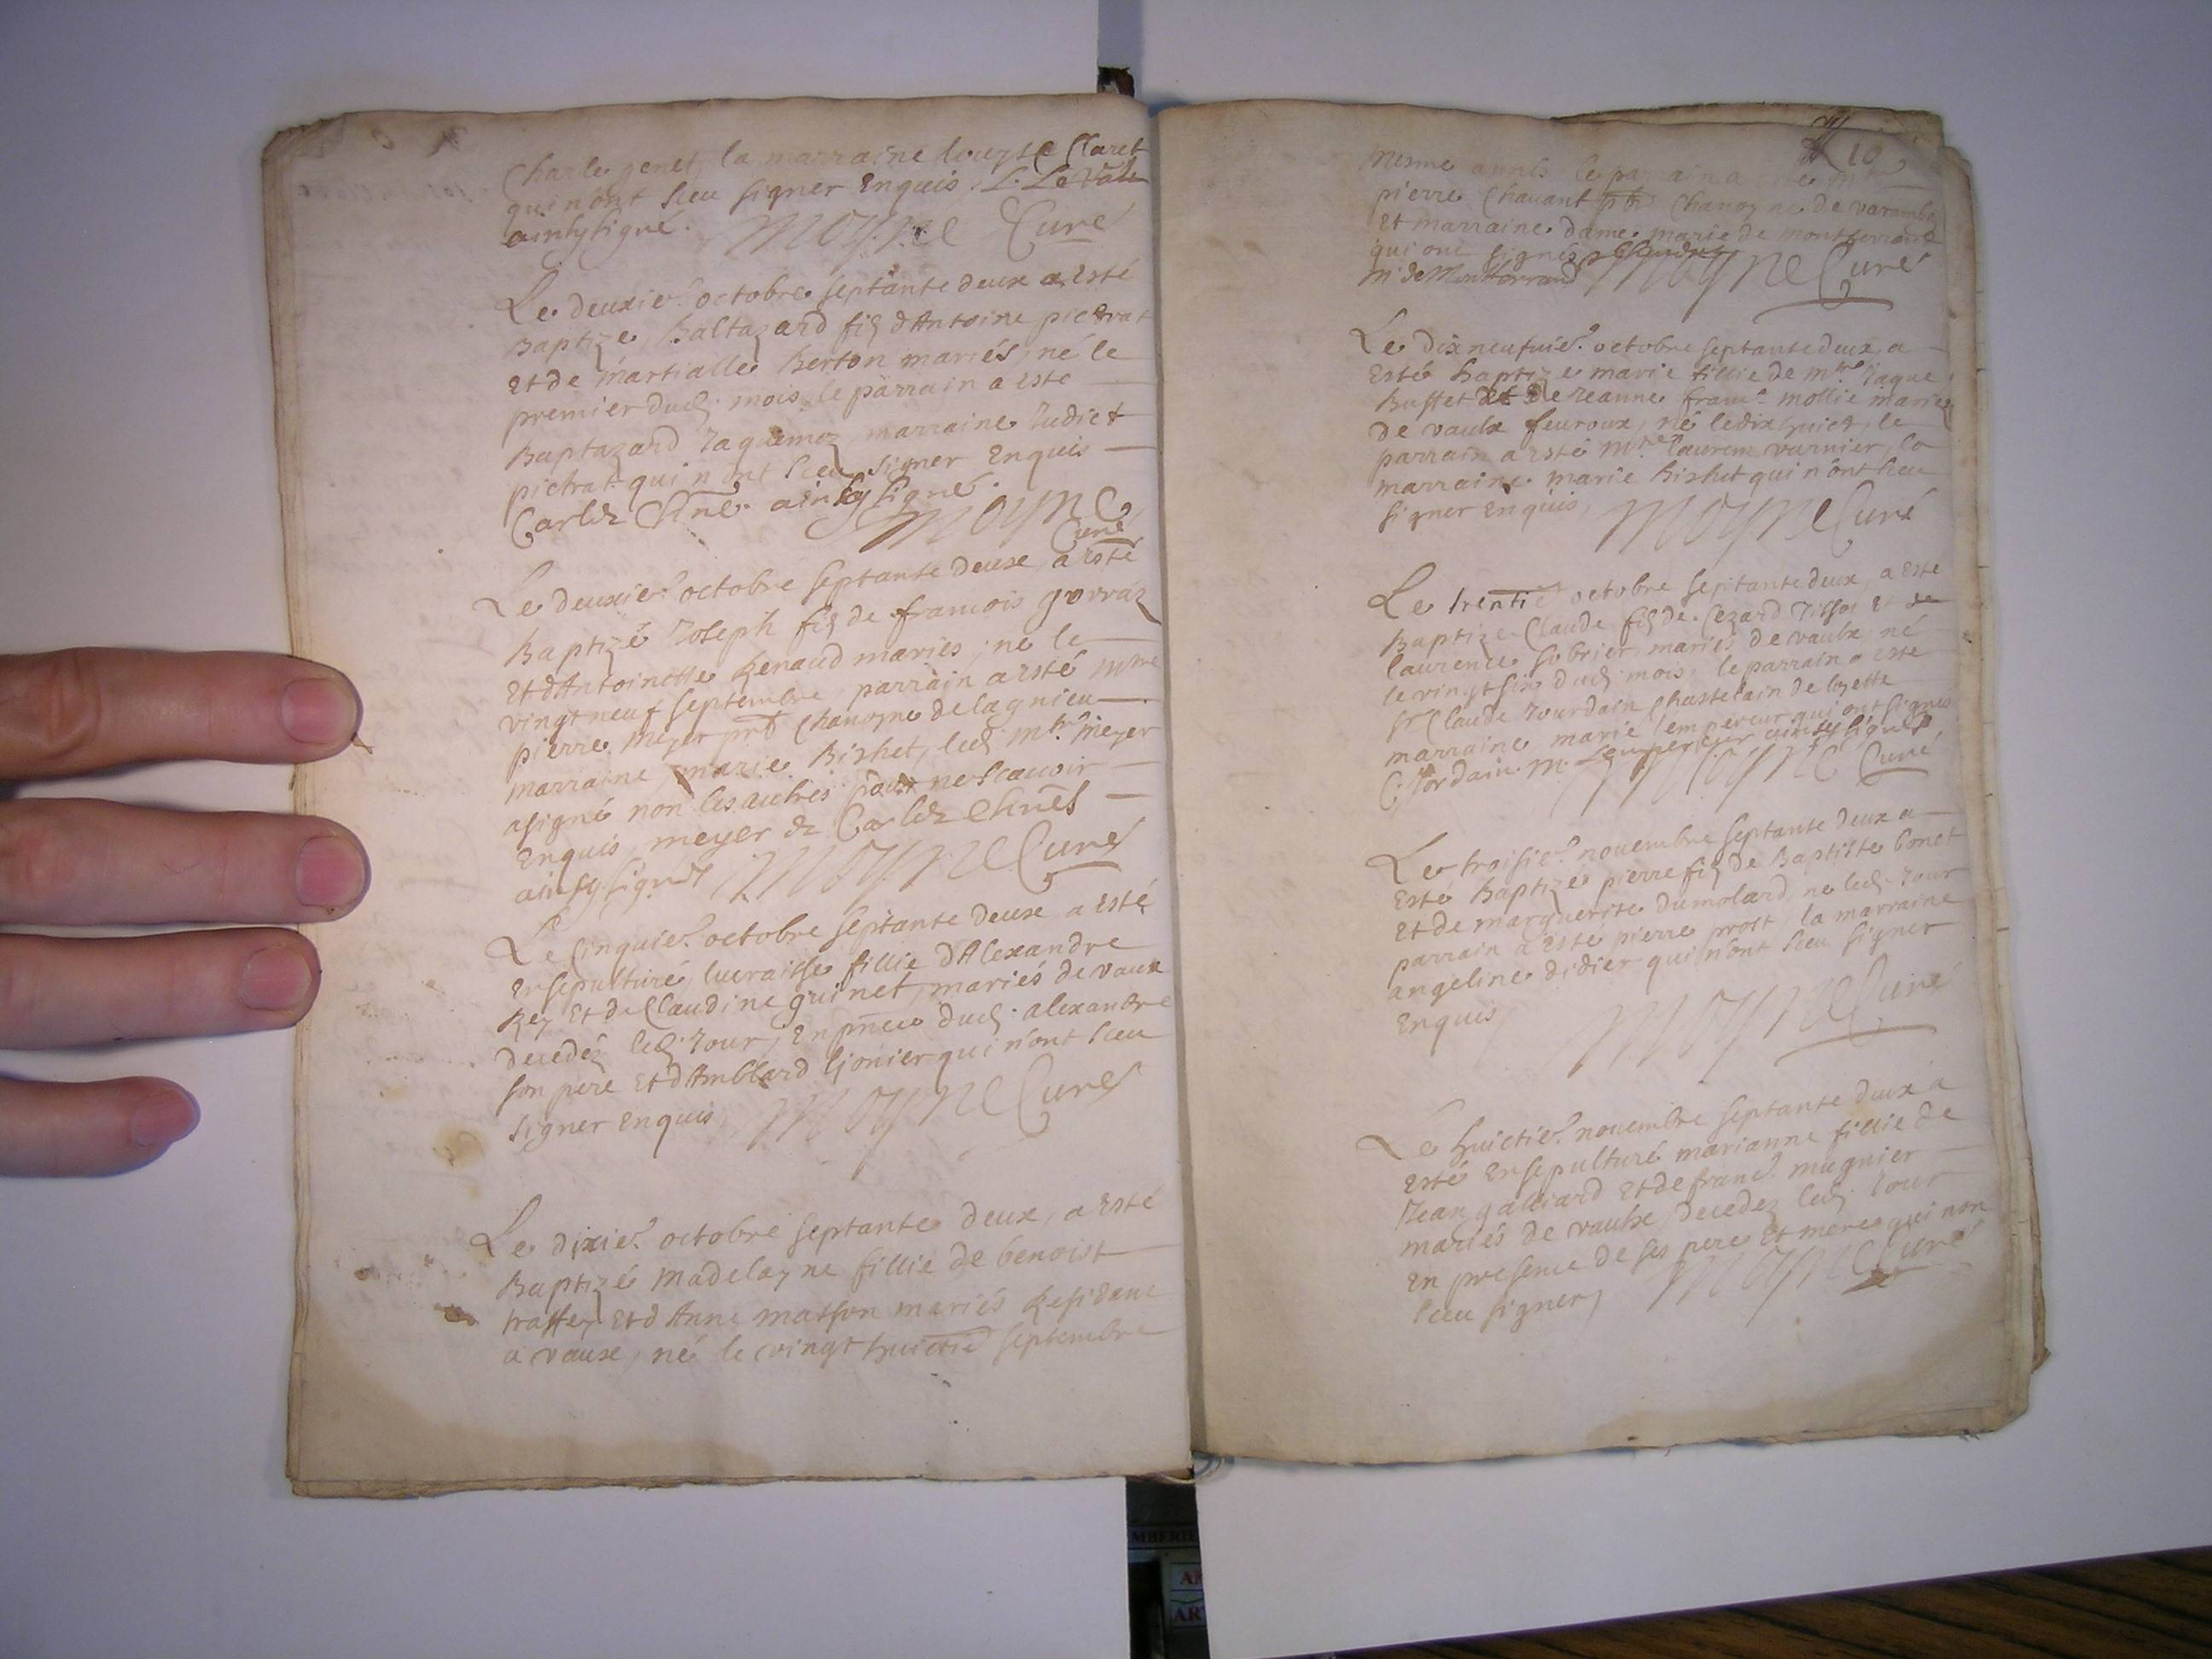 Charle genet, la marraine louyse Claret
qui n'ont sceu signer Enquis, L. Le
ainsy signé. Moyne Curé
Le deuxie. octobre septante deux a Esté
Baptize, Baltazard fis d'Antoine pictrat
Et de martialle Berton mariés, né le
premier dud. mois, le parrain a esté
Baptazard Jaquemoz, marraine Judict
pictrat qui n'ont sceu signer Enquis
Carlez ainsy signé. Moyne
Curé
Le deuxie. octobre septante deux, a esté
Baptizé Joseph fis de francois gorraz
Et d'Antoinette Renaud mariés, né le
vingt neuf septembre, parrain a esté mre
pierre meyer prb chanoyne de lagnieu
marraine, marie Bishet, led. mre meyer
a signé non les autres pour ne scauoir
Enquis, meyer & Carlez
ainsy signés Moyne Curé
Le sinquie. octobre septante deux a esté
Ensepulturé, lucraisse fillie d'Alexandre
Rey Et de Claudine guinet, mariés de vaux
decedéz led. Jour, En pnce dud. alexandre
son pere Et d'Amblard ljonier qui n'ont sceu
signer Enquis, Moyne Curé
Le dixie. octobre septante deux, a esté
Baptizé madelayne fillie de benoist
traffey Et d'Anne matson mariés Residant
a vaux, né le vingt huictie septembre
10
mesme année le parrain a
pierre Chauant pb Chanoyne de varambo
Et marraine dame marie de montferrand
qui ont signés
m. de Montferrand Moyne Curé
Le dixneufuie. octobre septante deux, a
Esté baptize marie fillie de mre Jaque
Buffet Et De Jeanne franc. mollie mariez
De vaulx feuroux, né le dix huict, le
parrain a esté mre laurem varnier, la
marraine marie Bishet qui n'ont sceu
signer Enquis, Moyne Curé
Le trentie octobre septante deux, a Esté
Baptize Claude fis de Cezard Tissot Et de
laurence sobrier mariés de vaulx né
le vingt six dud. mois, le parrain a esté
Sr Claude Jourdain Chastelain de loyette
marraine marie lempereur qui ont signés
C. Jordain. M. Lempereur ainsy signés
Moyne Curé
Le troisie. nouembre septante deux a
Esté Baptizé pierre fis de Baptiste bonet
Et de marguerite dumolard, né led. Jour
parrain a esté pierre prost, la marraine
angeline didier qui n'ont sceu signer
Enquis Moyne Curé
Le huictie. nouembre septante deux a
Esté Ensepulturé marianne fillie de
Jean galliard Et de franc. mugnier
mariés de vaulx, decedez led. Jour
En presence de ses pere Et mere qui non
sceu signer, Moyne Curé